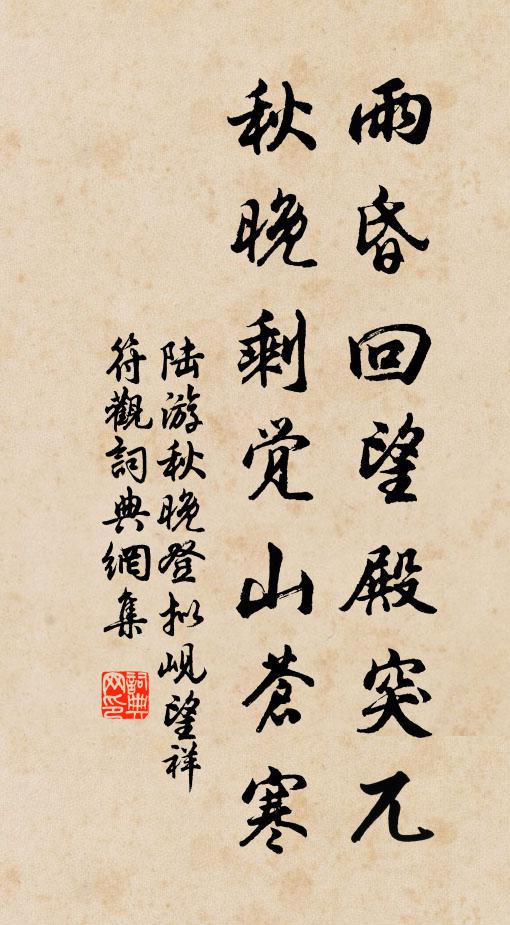 雨昏回望殿突兀
秋晚剩觉山苍寒
陆游秋晚登拟岘望祥
符觀詞典網集
詞典網印